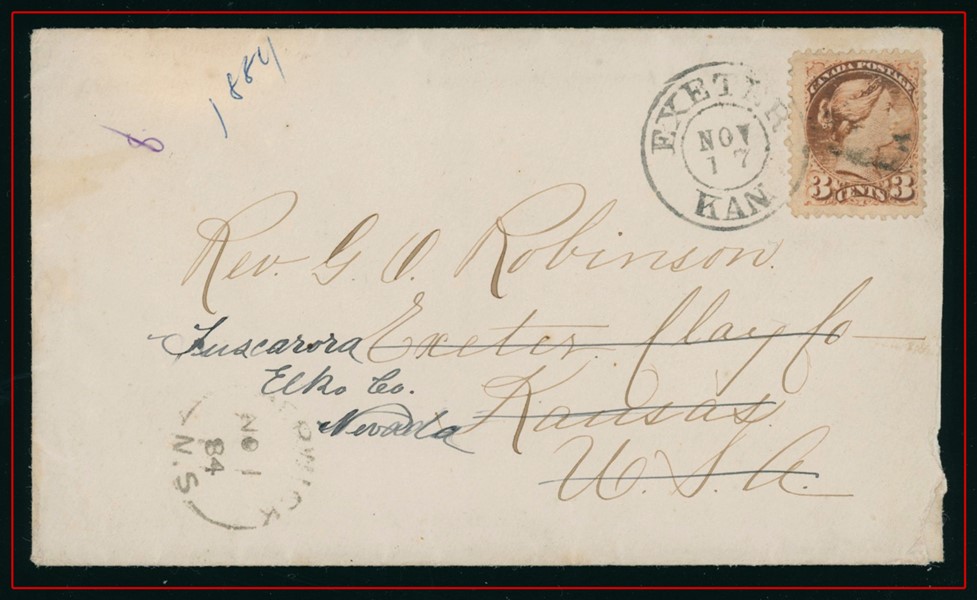 8
1884
EXETER
NOV
17
KAN
CANADA POSTAGE
3 CENTS 3
Rev. G. O. Robinson.
Exeter. Clay Co
Kansas
U. S. A.
Tuscarora
Elko Co.
Nevada
WICK
NO 1
84
N.S